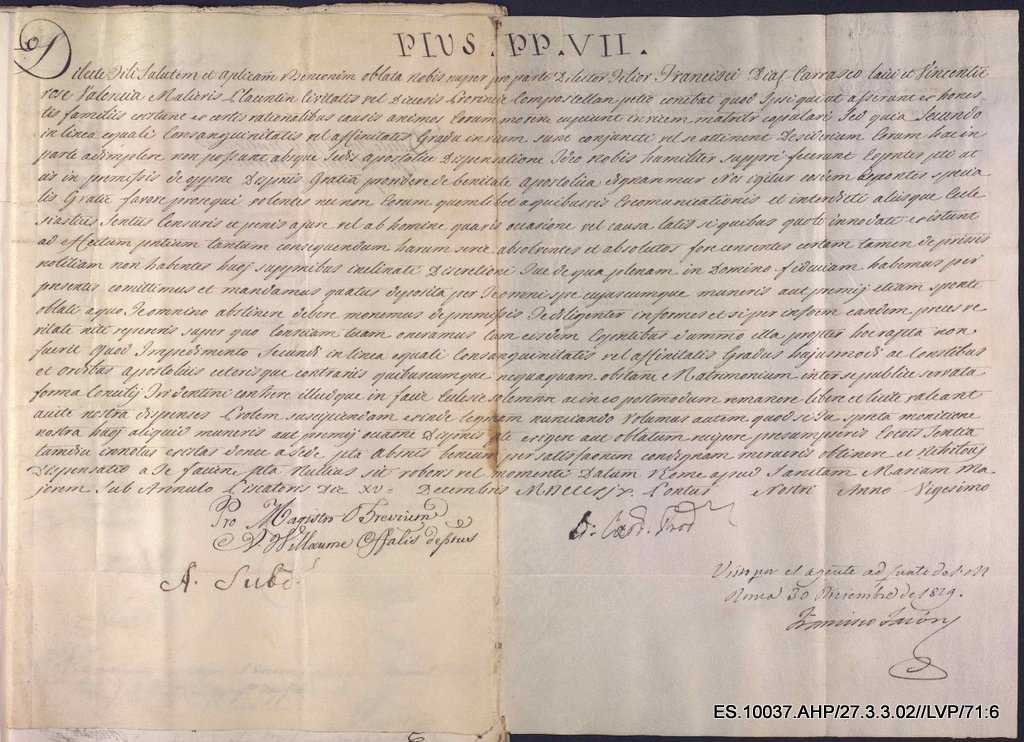 PIUS . PP. VII .
Dilecte Fili Salutem et Aplicam Benonem oblata Nobis nuper pro parte Dilector Filior Francisci Dias Carrasco laici et Vincentie
rose Valencia Mulieris Civitatis vel Diecesis Compostellan petio conebat quod Ipsi qui ut asserunt ex hones
tis familiis existunt ex certis rationalibus causis animos Eorum moven cupiunt invicem matrilr copulari Sed quia Secundo
in linea equali Consanguinitatis vel affinitatis Gradu invicem sunt conjuncti vel se attinent Desiderium Eorum hac in
parte adimplere non possunt absque Sedis apostolice Dispensatione Ideo Nobis humiliter suppri fecerunt Expntes ut at
eis in premissis de oppne Dispnis Gratia providere de benitate apostolica dignaremur Nos igitur eosdem Expontes specia
lis Gratie favore prosequi volentes nec non Eorum quemlibet a quibusvis Excomunicationis et interdicti aliisque Eccle
siasticis Sentiis Censuris et penis a jure vel ab homine quavis occasione vel causa latis si quibus quotr innodati existunt
ad effectum pntium tantum consequendum harum serie absolventes et absolutos fore censentes certam tamen de priissis
notitiam non habentes huoj supymibus inclinati Discretioni Tue de qua plenam in Domino fiduciam habemus per
presentes comittimus et mandamus quatus deposita per Te omni spe cujuscumque muneris aut premij etiam sponte
oblati a quo Te omnino abstinere debere monemus de premissis Te diligenter informes et si per inforem eandem preces ve
ritate niti repereris super quo Consciam tuam oneramus cum eisdem Expntibus dummodo illa propter hoc rapta non
fuerit Quod Impedimento Secundi in linea equali Consanguinitatis vel affinitatis Gradus hujusmodi ac Constibus
et ordibus apostolicis ceterisque contrariis quibuscumque nequaquam obstane Matrimonium inter se publice servata
forma Concilij Tridentini conhere illudque in facie Ecclesie solemnire ac in eo postmodum remanere libere et licite valeant
aucte nostra dispenses Prolem suscipiendam exinde legmam nunciando Volumus autem quod si Tu spreta monitione
nostra huoj aliquid muneris aut premij ocaone Dispnis pte exigere aut oblatum recipere presumpseris Excois Sentia
tamdiu innotus existas donec a Sede pta Abnis beneum per satisfaonem condignam merueris obtinere et Nihilous
Dispensatio a Te faciene pta Nullius sit roboris vel momenti Datum Rome apud Sanctam Mariam Ma
jorem Sub Annulo Piscatoris Die XV= Decembris Pontus Nostri Anno Vigesimo
Pro Magistro Brevium
N. Willaume Offalis
G. Card. Prod
A. Subd.
Visto por el agente de S. M
Roma 30 Diciembre de 1819.
Francisco
ES.10037.AHP/27.3.3.02//LVP/71:6